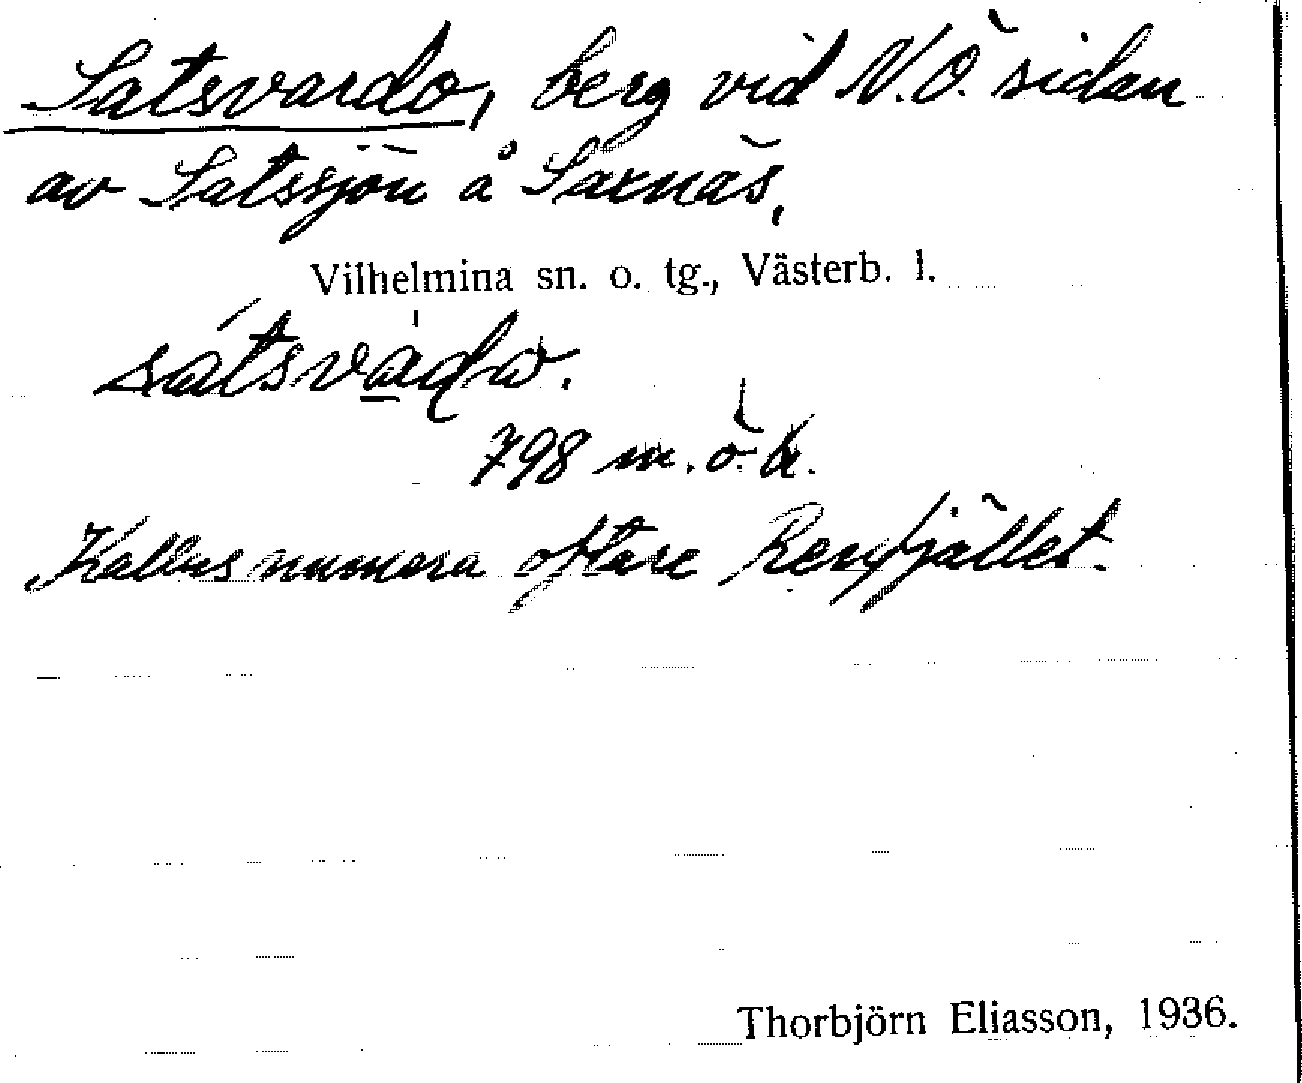 Satsvardo, berg vid N.Ö. sidan
av Satssjön å Saxnäs,
Vilhelmina sn. o. tg., Västerb. l.
sátsvàɖω.
798 m.ö.h.
Kallas numera oftare Renfjället.
Thorbjörn Eliasson, 1936.